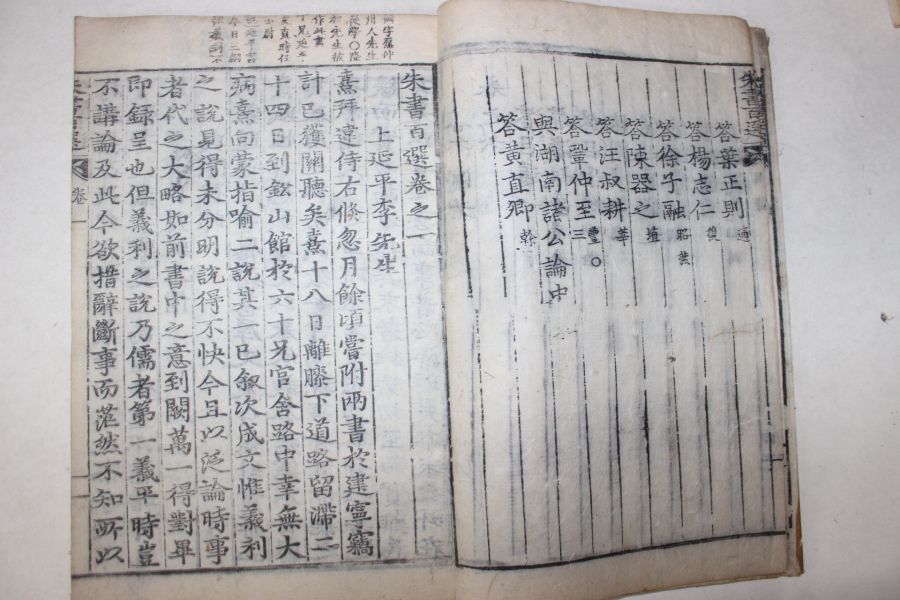 朱書百選
答葉正則 適
答楊志仁 復
答徐子融 昭然
答陳器之 埴
答汪叔耕 莘
答鞏仲至 豐○三
與湖南諸公論中
答黃直卿 榦
門人先生
初先生被
作此書
朱書百選卷之一
上延平李先生
熹拜違侍右倏忽月餘頃嘗附兩書於建寧竊
計已獲關聽矣熹十八日離膝下道路留滯二
十四日到鈆山館於六十兄官舍路中幸無大
病熹向蒙指喻二說其一已敍次成文惟義利
之說見得未分明說得不快今且以泛論時事
者代之大略如前書中之意到闕萬一得對畢
即錄呈也但義利之說乃儒者第一義平時豈
不講論及此今欲措辭斷事而茫然不知所以
朱書百選 卷一 一